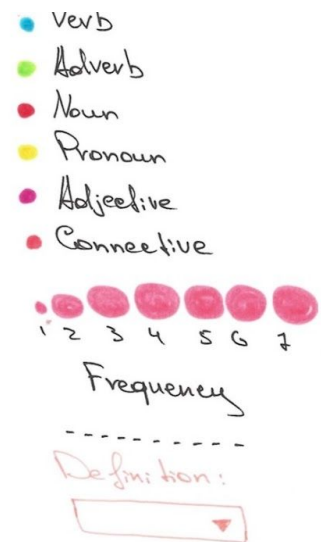 Verb
Adverb
Noun
Pronoun
Adjective
Connective
1 2 3 4 5 6 7
Frequency
Definition: